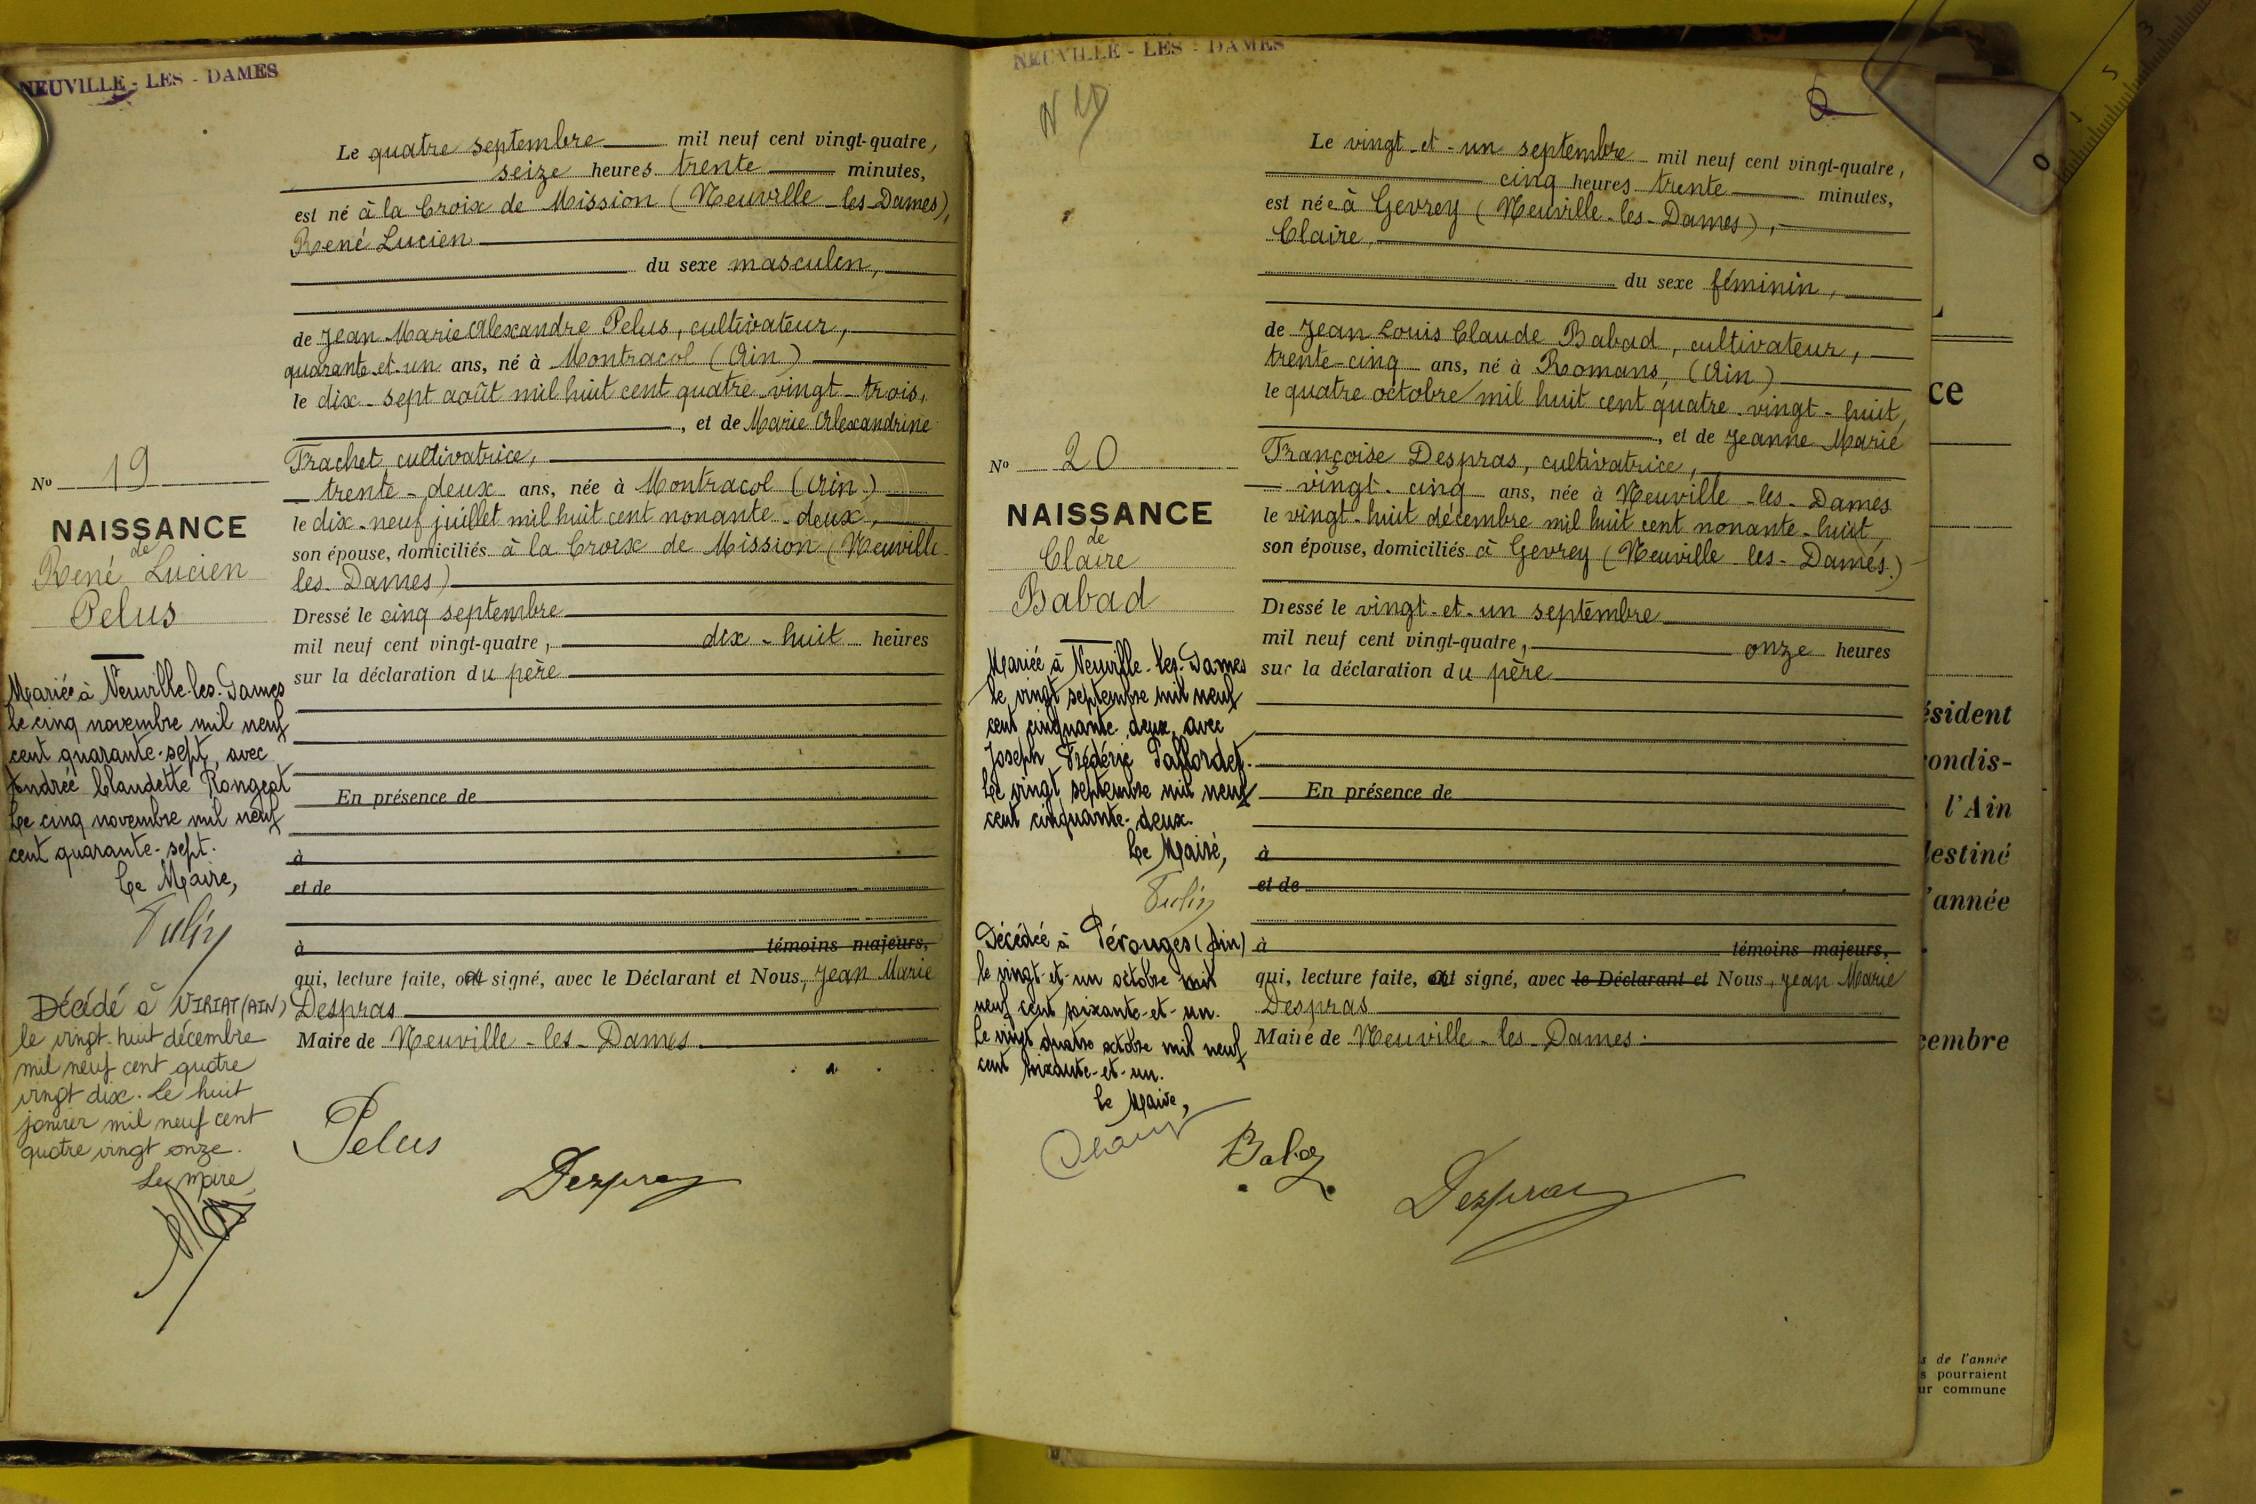 NEUVILLE - LES - DAMES
Le quatre septembre mil neuf cent vingt-quatre,
seize heures trente minutes,
est né à la Croix de Mission (Neuville-les-Dames),
René Lucien
du sexe masculin,
de Jean Marie Alexandre Pelus, cultivateur,
quarante-et-un ans, né à Montracol (Ain)
le dix-sept août mil huit cent quatre-vingt-trois,
, et de Marie Alexandrine
Trachet, cultivatrice,
trente-deux ans, née à Montracol (Ain)
le dix-neuf juillet mil huit cent nonante-deux,
son épouse, domiciliés à la Croix de Mission (Neuville-
les-Dames)
Dressé le cinq septembre
mil neuf cent vingt-quatre, dix-huit heures
sur la déclaration du père
En présence de
à
et de
à témoins majeurs,
qui, lecture faite, ont signé, avec le Déclarant et Nous, Jean Marie
Despras
Maire de Neuville-les-Dames.
Pelus
Despras
No 19
NAISSANCE
de
René Lucien
Pelus
Mariée à Neuville-les-Dames
le cinq novembre mil neuf
cent quarante-sept, avec
Andrée Claudette Rongeat
Le cinq novembre mil neuf
cent quarante-sept.
Le Maire,
Décédé à VIRIAT (AIN)
le vingt-huit décembre
mil neuf cent quatre
vingt dix. Le huit
janvier mil neuf cent
quatre vingt onze.
Le maire
NEUVILLE - LES - DAMES
Le vingt-et-un septembre mil neuf cent vingt-quatre,
cinq heures trente minutes,
est née à Gevrey (Neuville-les-Dames),
Claire,
du sexe féminin,
de Jean Louis Claude Babad, cultivateur,
trente-cinq ans, né à Romans, (Ain)
le quatre octobre mil huit cent quatre-vingt-huit,
, et de Jeanne Marie
Françoise Despras, cultivatrice,
vingt-cinq ans, née à Neuville-les-Dames
le vingt-huit décembre mil huit cent nonante-huit,
son épouse, domiciliés à Gevrey (Neuville-les-Dames.)
Dressé le vingt-et-un septembre
mil neuf cent vingt-quatre, onze heures
sur la déclaration du père
En présence de
à
et de
à témoins majeurs,
qui, lecture faite, ont signé, avec le Déclarant et Nous, Jean Marie
Despras
Maire de Neuville-les-Dames.
Despras
No 20
NAISSANCE
de
Claire
Babad
Mariée à Neuville-les-Dames
le vingt septembre mil neuf
cent cinquante-deux, avec
Joseph Frédéric Paffordet.
Le vingt septembre mil neuf
cent cinquante-deux.
Le Maire,
Décédée à Pérouges (Ain)
le vingt-et-un octobre mil
neuf cent soixante-et-un.
Le vingt quatre octobre mil neuf
cent soixante-et-un.
Le Maire,
ce
ésident
condis-
l'Ain
destiné
l'année
cembre
s de l'année
s pourraient
ur commune
0 1
5
3